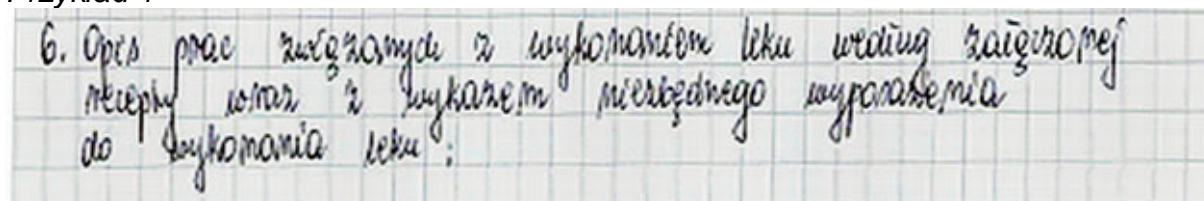 Przykład 1
6. Opis prac związanych z wykonaniem leku według załączonej
recepty wraz z wykazem niezbędnego wyposażenia
do wykonania leku :